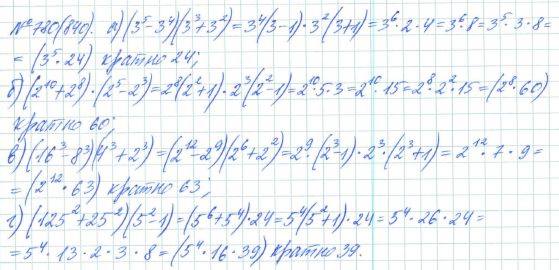 № 780(840). а) (3⁵-3⁴)(3³+3²)=3⁴(3-1)·3²(3+1)=3⁶·2·4=3⁶·8=3⁵·3·8=
=(3⁵·24) кратно 24;
б) (2¹⁰+2⁸)·(2⁵-2³)=2⁸(2²+1)·2³(2²-1)=2¹⁰·5·3=2¹⁰·15=2⁸·2²·15=(2⁸·60)
кратно 60;
в) (16³-8³)(4³+2³)=(2¹²-2⁹)(2⁶+2²)=2⁹·(2³-1)·2³·(2³+1)=2¹²·7·9=
=(2¹²·63) кратно 63;
г) (125²+25²)(5²-1)=(5⁶+5⁴)·24=5⁴(5²+1)·24=5⁴·26·24=
=5⁴·13·2·3·8=(5⁴·16·39) кратно 39.